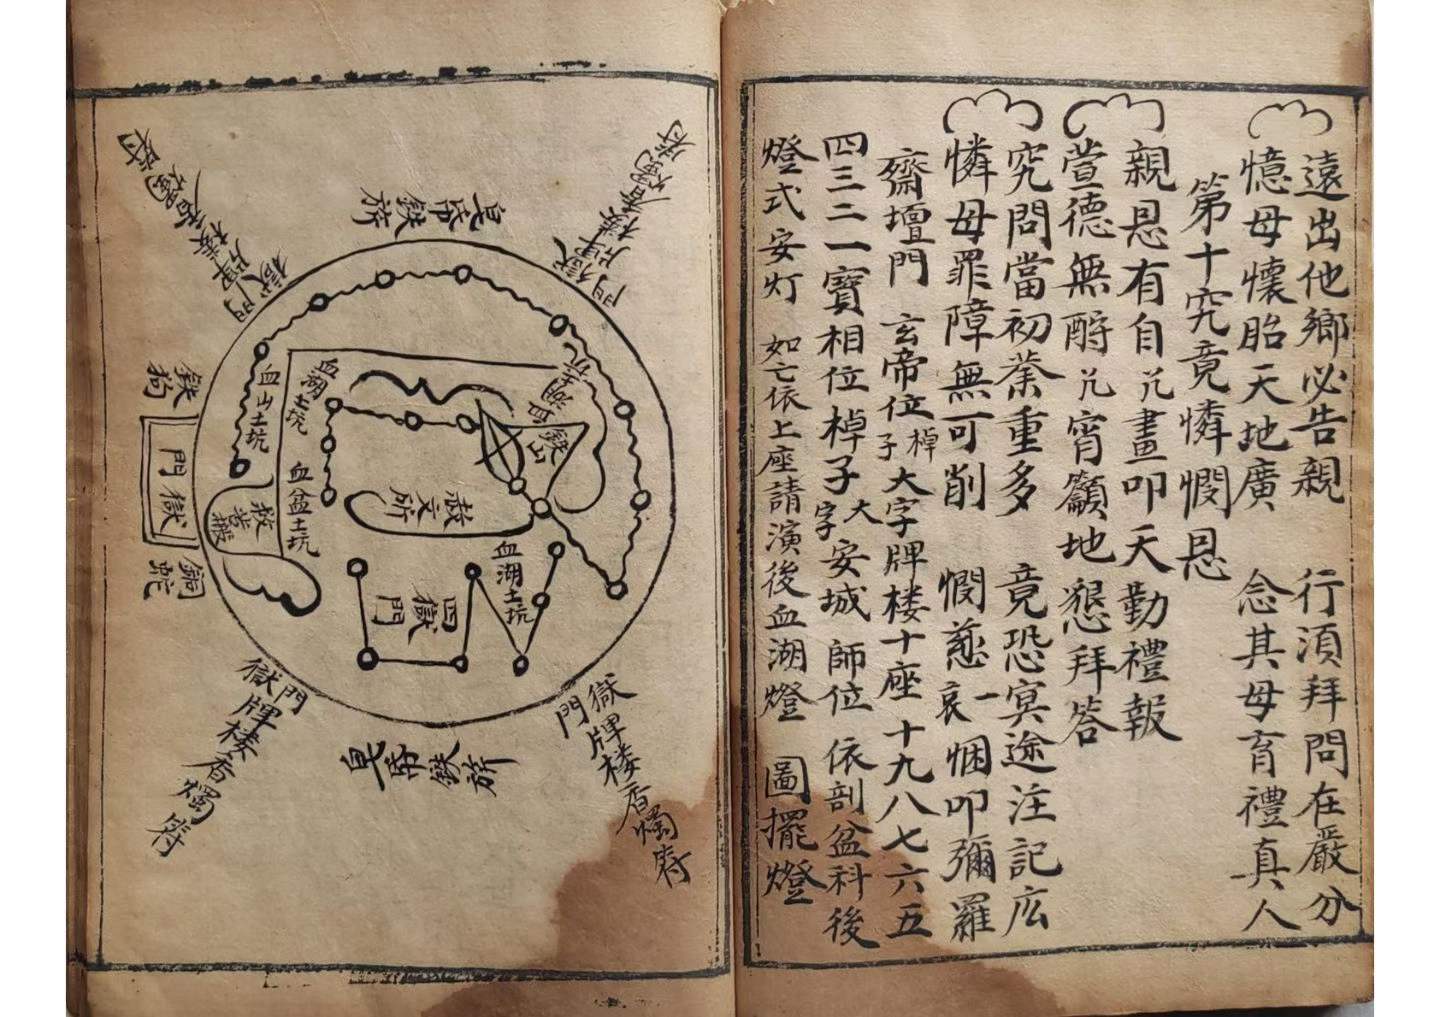 遠出他鄉必告親 行須拜問在嚴分
憶母懷胎天地廣 念其母育禮真人
第十究竟憐憫恩
親恩有自兊晝叩天勤禮報
萱德無酧兊宵籲地懇拜答
究問當初業重多 竟恐冥途注記広
憐母罪障無可削 憫慈哀一悃叩彌羅
齋壇門 玄帝位棹子大字牌楼十座十九八七六五
四三二一寶相位棹子大字安城 師位 依剖盆科後
燈式安灯 如亡依上座請演後血湖燈 圖擺燈
獄門牌楼香燭
獄門牌楼香燭
鉄狗
獄門
銅蛇
血山土坑
血湖土坑
血盆土坑
救苦
赦文所
血湖土坑
四獄門
獄門牌楼香燭
獄門牌楼香燭